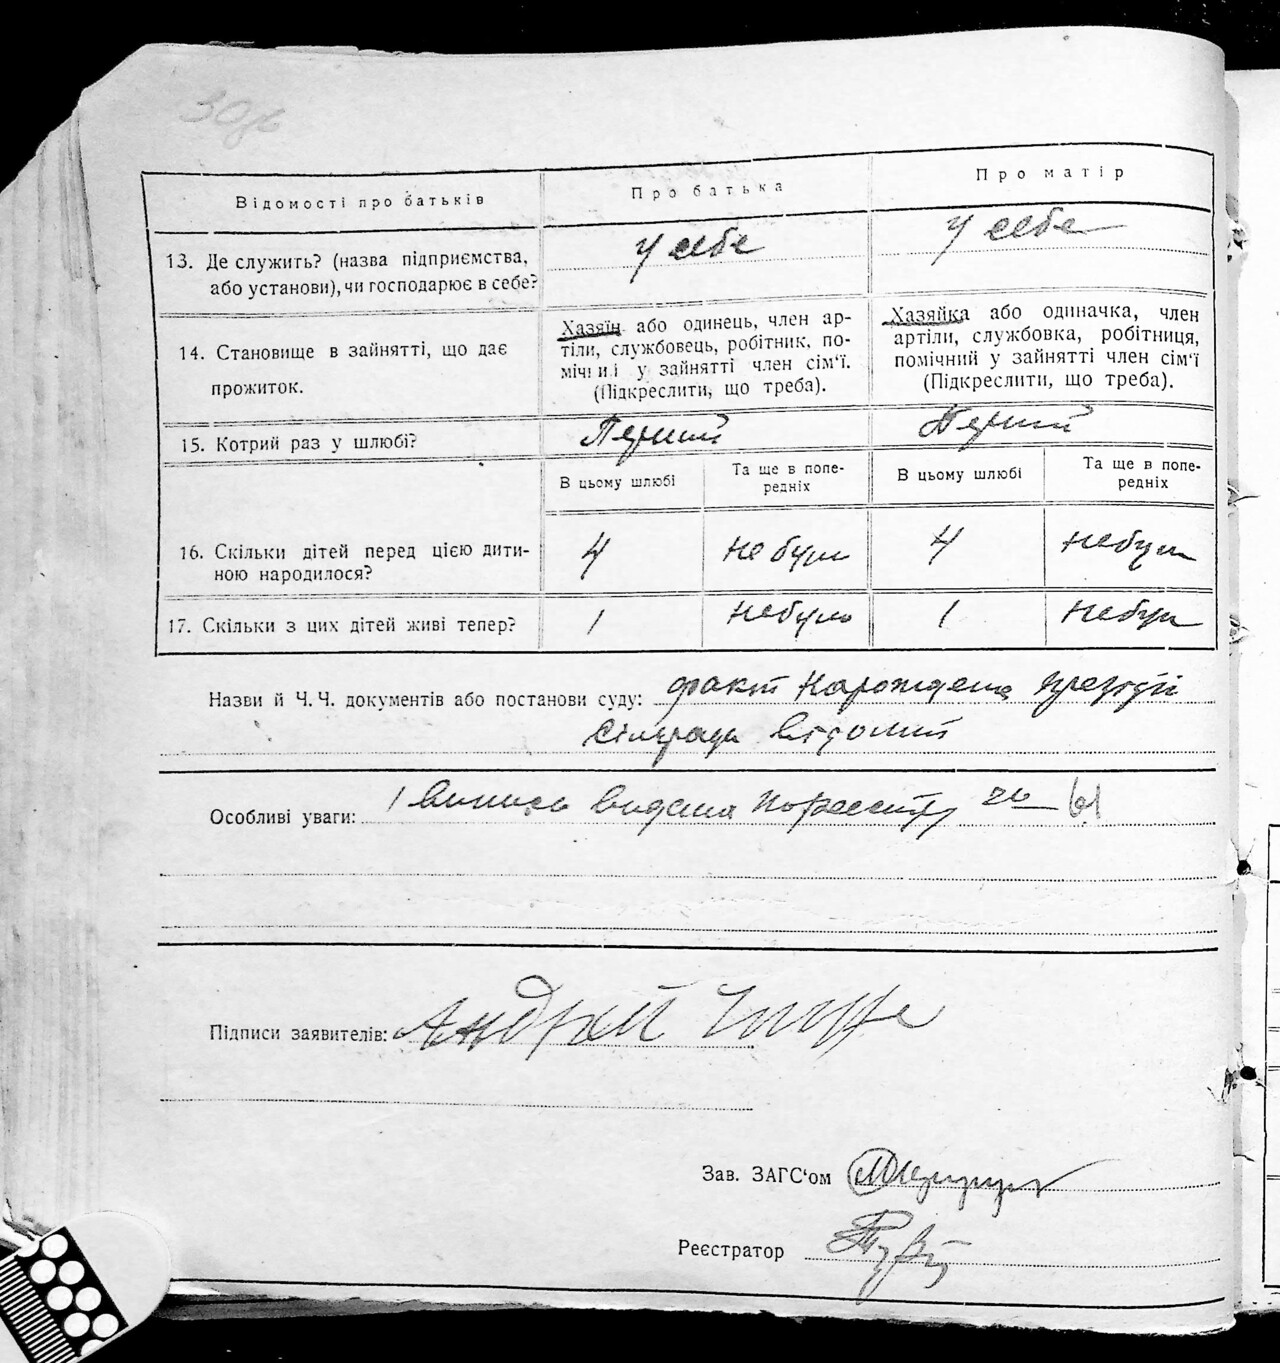 30
Відомості про батьків
Про батька
Про матір
13. Де служить? (назва підприємства, або установи), чи господарює в себе?
У себе
У себе
14. Становище в зайнятті, що дає прожиток.
Хазяїн або одинець, член ар-
тіли, службовець, робітник, по-
мічний у зайнятті член сім'ї.
(Підкреслити, що треба).
Хазяйка або одиначка, член
артіли, службовка, робітниця,
помічний у зайнятті член сім'ї
(Підкреслити, що треба).
15. Котрий раз у шлюбі?
Перший
Перший
В цьому шлюбі
Та ще в попе-
редніх
В цьому шлюбі
Та ще в попе-
редніх
16. Скільки дітей перед цією дити-
ною народилося?
4
не було
4
небуло
17. Скільки з цих дітей живі тепер?
1
небуло
1
небуло
Назви й Ч. Ч. документів або постанови суду: факт нарождения президії
сільради відомий
Особливі уваги: 1 випись видана по реєстру 61
Підписи заявителів: Андрій
Зав. ЗАГС'ом
Реєстратор